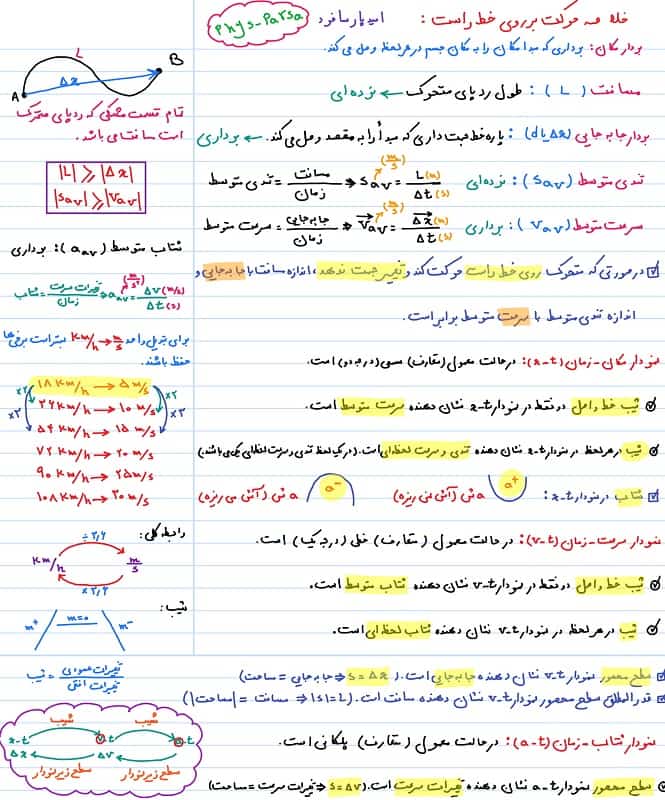 خلاصه حرکت بر روی خط راست :
Phys-Parsa
بردار مکان: برداری که مبدا مکان را به مکان جسم در هر لحظه وصل می کند.
مسافت ( L ) : طول ردپای متحرک ← نرده ای
بردار جابه جایی (Δx یا d) : پاره خط جهت داری که مبدأ را به مقصد وصل می کند. ← برداری
تندی متوسط (Sav) : نرده ای Sav = L(m) / Δt(s) (m/s) ⇐ مسافت / زمان = تندی متوسط
سرعت متوسط (Vav) : برداری Vav = Δx(m) / Δt(s) (m/s) ⇐ جابه جایی / زمان = سرعت متوسط
در صورتی که متحرک روی خط راست حرکت کند و تغییر جهت ندهد، اندازه مسافت با جابه جایی و
اندازه تندی متوسط با سرعت متوسط برابر است.
نمودار مکان-زمان (x-t): در حالت معمول (متعارف) سهمی (درجه دو) است.
شیب خط واصل دو نقطه در نمودار x-t نشان دهنده سرعت متوسط است.
شیب در هر لحظه در نمودار x-t نشان دهنده تندی و سرعت لحظه ای است. (در یک لحظه تندی و سرعت لحظه ای یکی می باشند)
شتاب در نمودار x-t :
a⁺ (آش نمی ریزه)
a⁻ (آش می ریزه)
نمودار سرعت-زمان (v-t): در حالت معمول (متعارف) خطی (درجه یک) است.
شیب خط واصل دو نقطه در نمودار v-t نشان دهنده شتاب متوسط است.
شیب در هر لحظه در نمودار v-t نشان دهنده شتاب لحظه ای است.
سطح محصور نمودار v-t نشان دهنده جابه جایی است. (S = Δx ⇒ جابه جایی = مساحت)
قدرالمطلق سطح محصور نمودار v-t نشان دهنده مسافت است. (|S|=L ⇒ مسافت = |مساحت|)
نمودار شتاب-زمان (a-t): در حالت معمول (متعارف) پلکانی است.
سطح محصور نمودار a-t نشان دهنده تغییرات سرعت است. (S = ΔV ⇒ تغییرات سرعت = مساحت)
L
A
Δx
B
تمام قسمت مشکی که ردپای متحرک
است مسافت می باشد.
|L| ⩾ |Δx|
|Sav| ⩾ |Vav|
شتاب متوسط (aav): برداری
aav = ΔV(m/s) / Δt(s) (m/s²) ⇐ تغییرات سرعت / زمان = شتاب
برای تبدیل واحد km/h → m/s بهتر است برخی ها
حفظ باشند.
۱۸ km/h → ۵ m/s
۳۶ km/h → ۱۰ m/s
×۲ ×۲
۵۴ km/h → ۱۵ m/s
×۳ ×۳
۷۲ km/h → ۲۰ m/s
۹۰ km/h → ۲۵ m/s
۱۰۸ km/h → ۳۰ m/s
رابطه کلی:
÷۳,۶
km/h m/s
×۳,۶
شیب:
m⁺ m=0 m⁻
تغییرات عمودی / تغییرات افقی = شیب
شیب شیب
x-t v-t a-t
Δx ΔV
سطح زیر نمودار سطح زیر نمودار